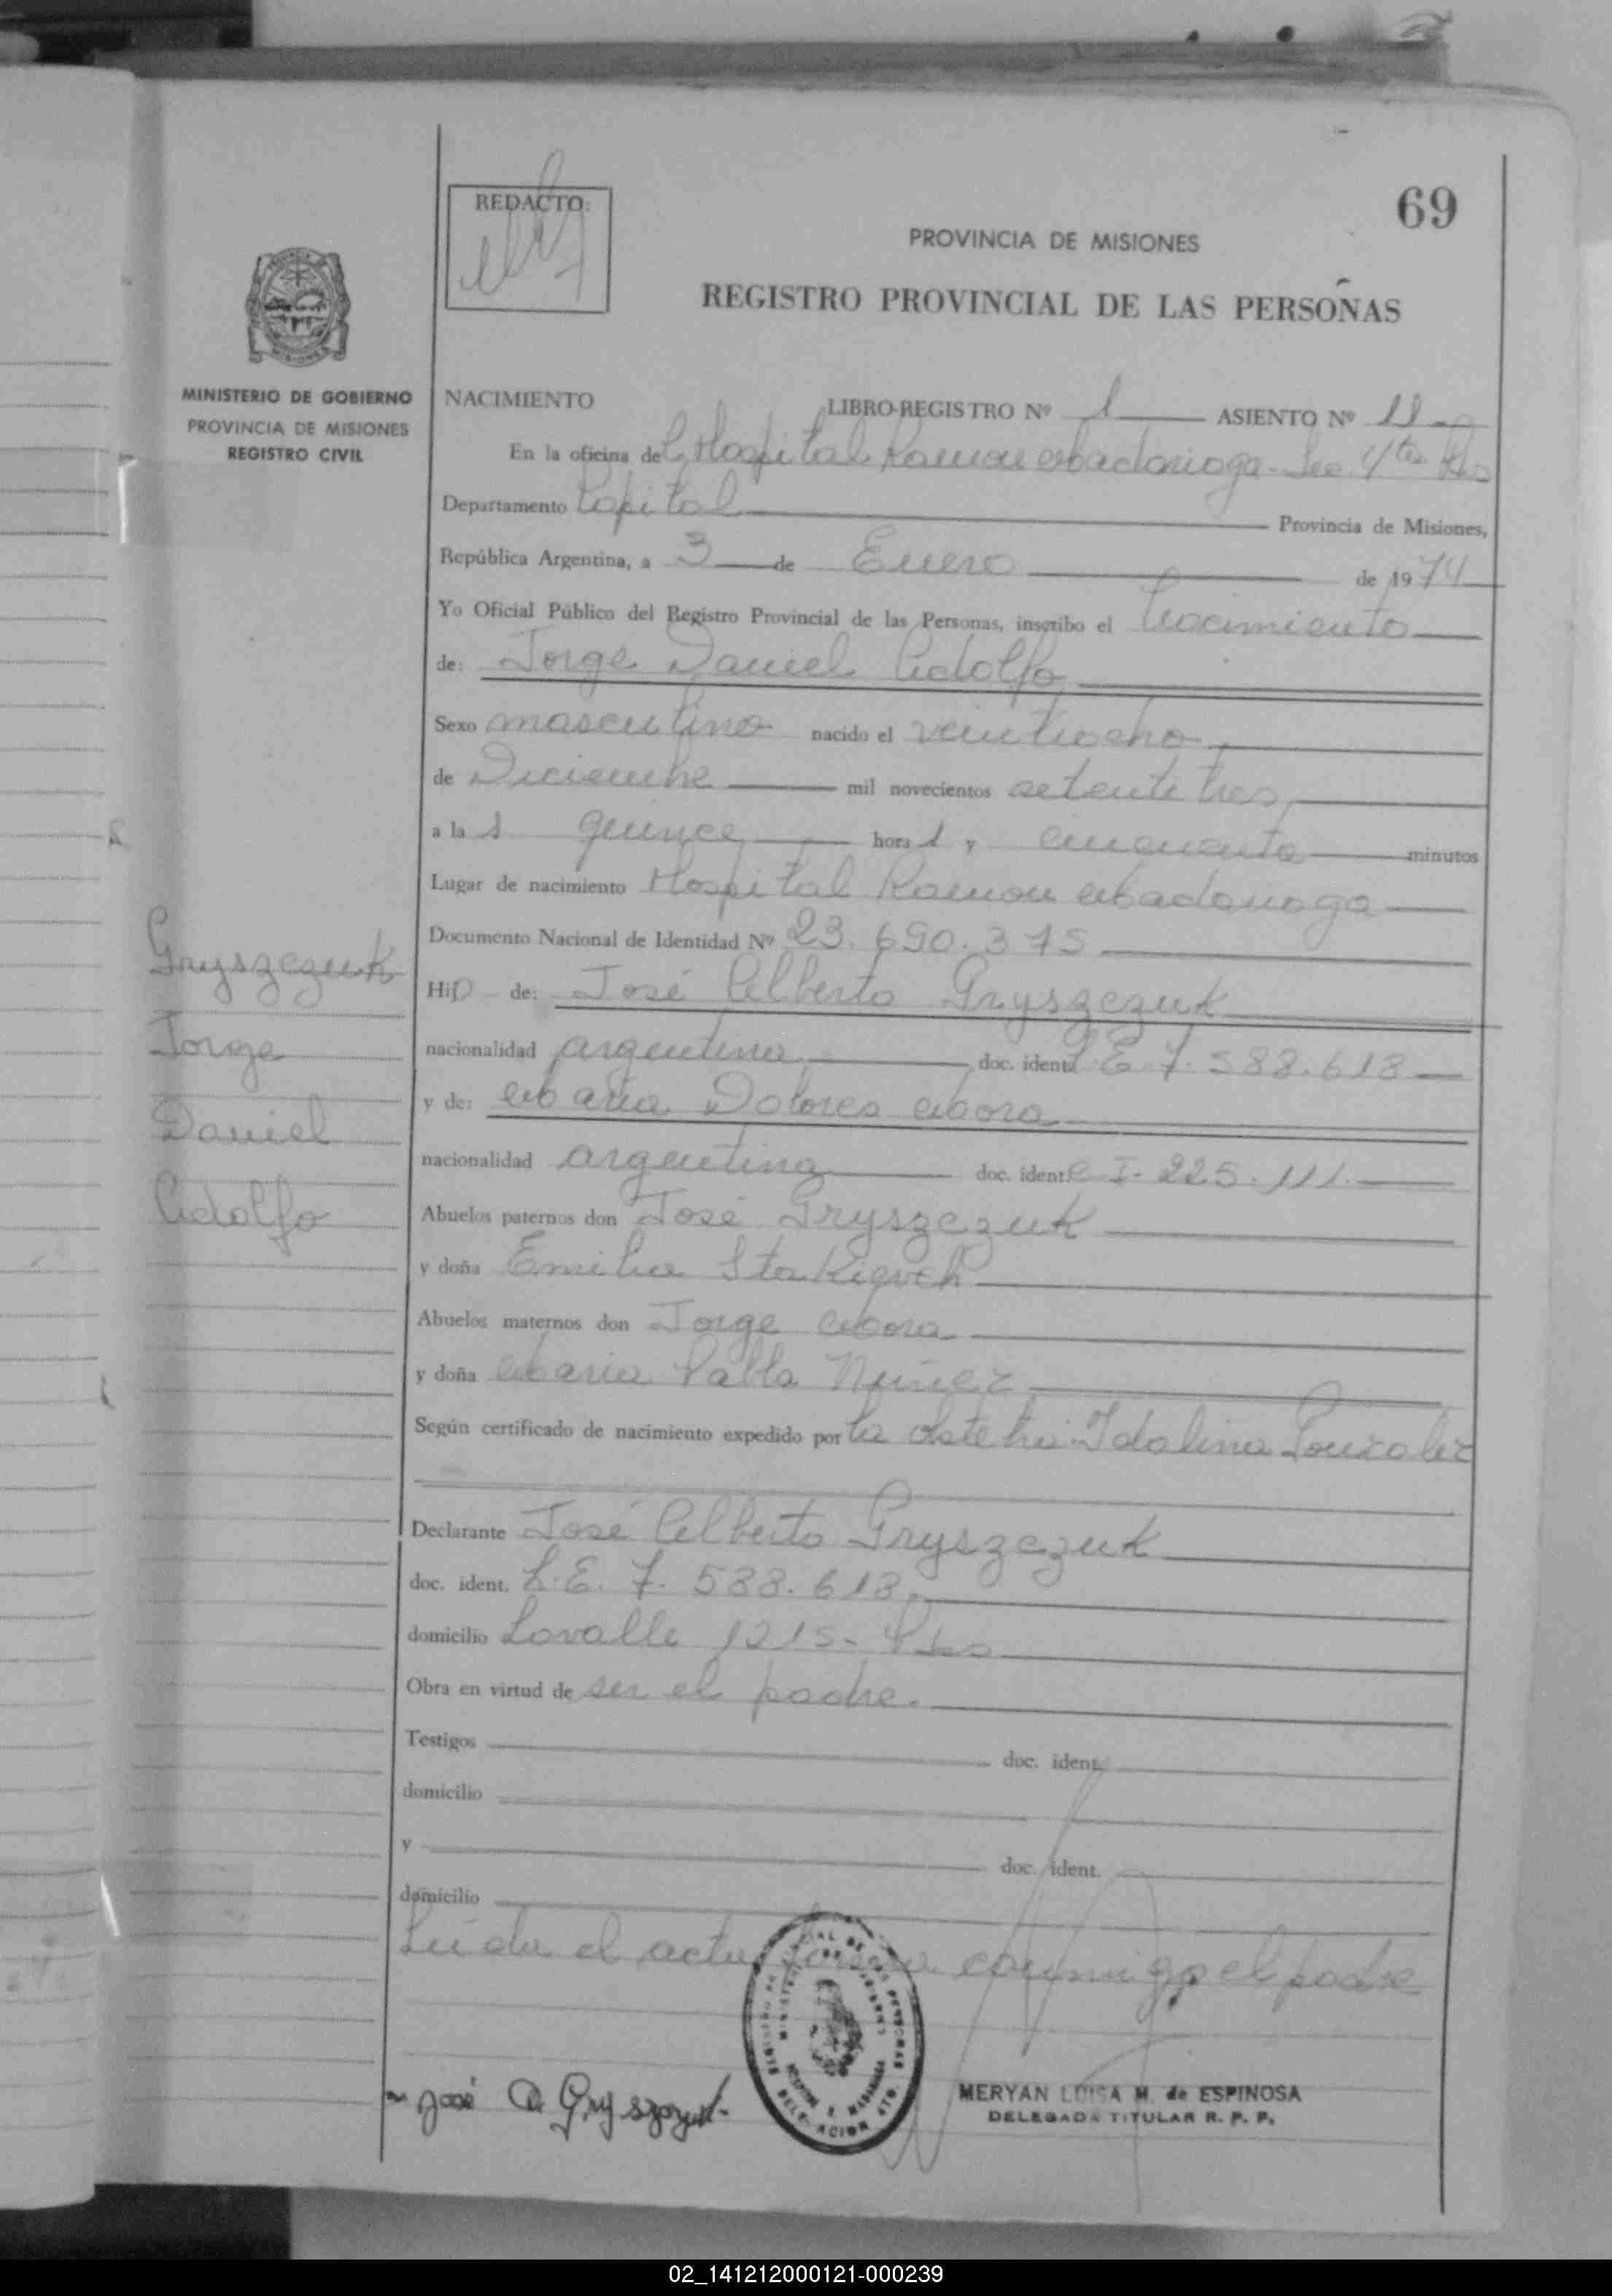 69
REDACTO:
PROVINCIA DE MISIONES
REGISTRO PROVINCIAL DE LAS PERSONAS
MISIONES
MINISTERIO DE GOBIERNO
PROVINCIA DE MISIONES
REGISTRO CIVIL
NACIMIENTO LIBRO-REGISTRO Nº 1 ASIENTO Nº 11
En la oficina de Hospital Ramon Madariaga
Departamento Capital Provincia de Misiones,
República Argentina, a 3 de Enero de 1974
Yo Oficial Público del Registro Provincial de las Personas, inscribo el Nacimiento
de: Jorge Daniel Adolfo
Sexo masculino nacido el veintiocho
de Diciembre mil novecientos setenta tres
a la s quince hora s y cincuenta minutos
Lugar de nacimiento Hospital Ramon Madariaga
Documento Nacional de Identidad Nº 23.690.375
Hijo de: José Alberto Gryszczuk
nacionalidad argentina doc. ident. L.E. 7.588.618
y de: Maria Dolores Mora
nacionalidad argentina doc. ident. C.I. 225.111.
Abuelos paternos don José Gryszczuk
y doña Emilia
Abuelos maternos don Jorge Mora
y doña Maria Pabla Nuñez
Según certificado de nacimiento expedido por la obstetri. Idalina Gonzalez
Declarante José Alberto Gryszczuk
doc. ident. L.E. 7.588.618
domicilio Lavalle 1215- Pdas
Obra en virtud de ser el padre.
Testigos doc. ident.
domicilio
y doc. ident.
domicilio
Leida el acta firma conmigo el padre
Gryszczuk
Jorge
Daniel
Adolfo
José A. Gryszczuk
MERYAN LUISA M. de ESPINOSA
DELEGADA TITULAR R. P. P.
02_141212000121-000239